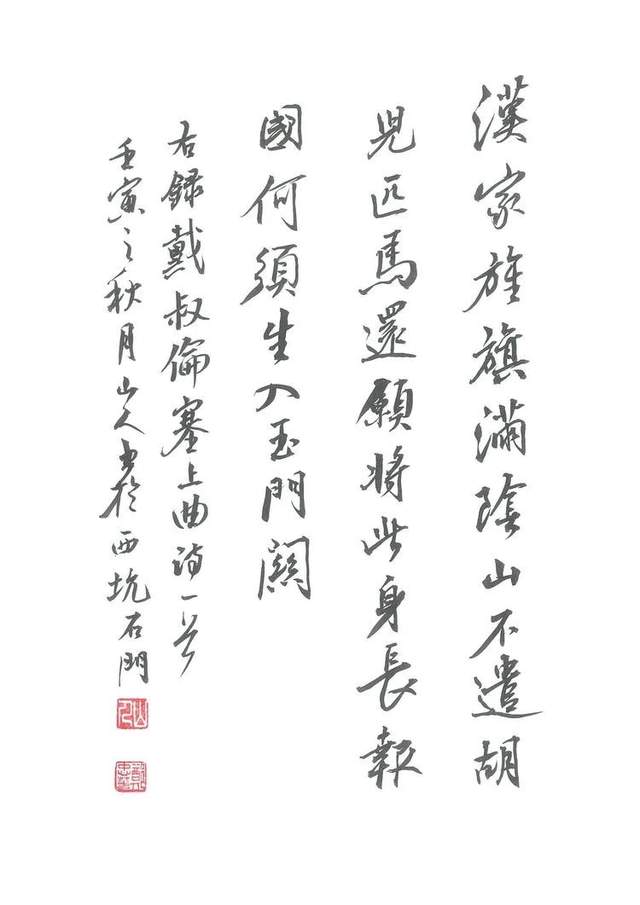 漢家旌旗滿陰山不遣胡
兒匹馬還願將此身長報
國何須生入玉門關
右録戴叔倫塞上曲詩一首
壬寅之秋月山人書於西坑石門
山人